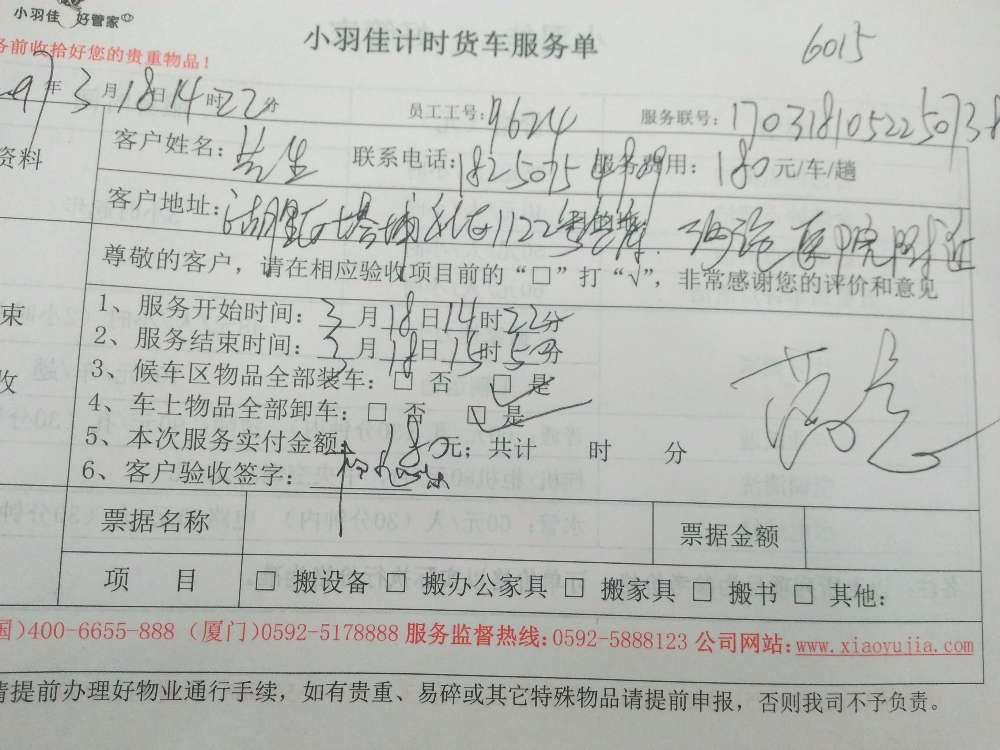 小羽佳 好管家
小羽佳计时货车服务单
6015
务前收拾好您的贵重物品!
年3月18日14时22分 员工工号:9624 服务联号:170318105225073
资料 客户姓名: 联系电话:18250754989 服务费用:180元/车/趟
客户地址:湖里 1122 医院附近
尊敬的客户，请在相应验收项目前的“□”打“√”，非常感谢您的评价和意见
束 1、服务开始时间:3月18日14时22分
2、服务结束时间:3月18日15时50分
收 3、候车区物品全部装车:□ 否 □ 是
4、车上物品全部卸车:□ 否 □ 是
5、本次服务实付金额: 180元；共计 时 分
6、客户验收签字:
票据名称 票据金额
项 目 □ 搬设备 □ 搬办公家具 □ 搬家具 □ 搬书 □ 其他:
国)400-6655-888 (厦门)0592-5178888 服务监督热线:0592-5888123 公司网站:www.xiaoyujia.com
请提前办理好物业通行手续，如有贵重、易碎或其它特殊物品请提前申报，否则我司不予负责。